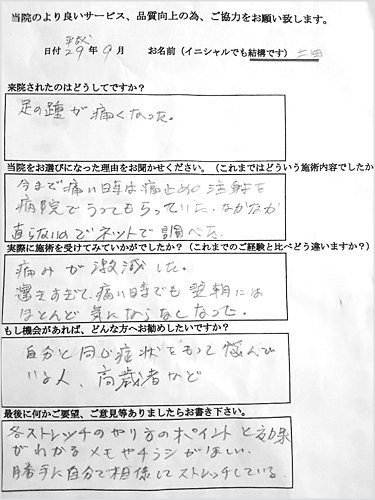 当院のより良いサービス、品質向上の為、ご協力をお願い致します。
平成
日付 29年9月 お名前（イニシャルでも結構です）
来院されたのはどうしてですか？
足の踵が痛くなった。
当院をお選びになった理由をお聞かせください。（これまではどういう施術内容でしたか
今まで痛い時は痛止めの注射を
病院でうってもらっていた。なかなか
直らないのでネットで調べた。
実際に施術を受けてみていかがでしたか？（これまでのご経験と比べどう違いますか？）
痛みが激減した。
運動すぎて、痛い時でも翌朝には
ほとんど気にならなくなった。
もし機会があれば、どんな方へお勧めしたいですか？
自分と同じ症状をもって悩んで
いる人、高齢者など
最後に何かご要望、ご意見等ありましたらお書き下さい。
各ストレッチのやり方のポイントと効果
がわかるメモやチラシがほしい。
勝手に自分で想像してストレッチしている。